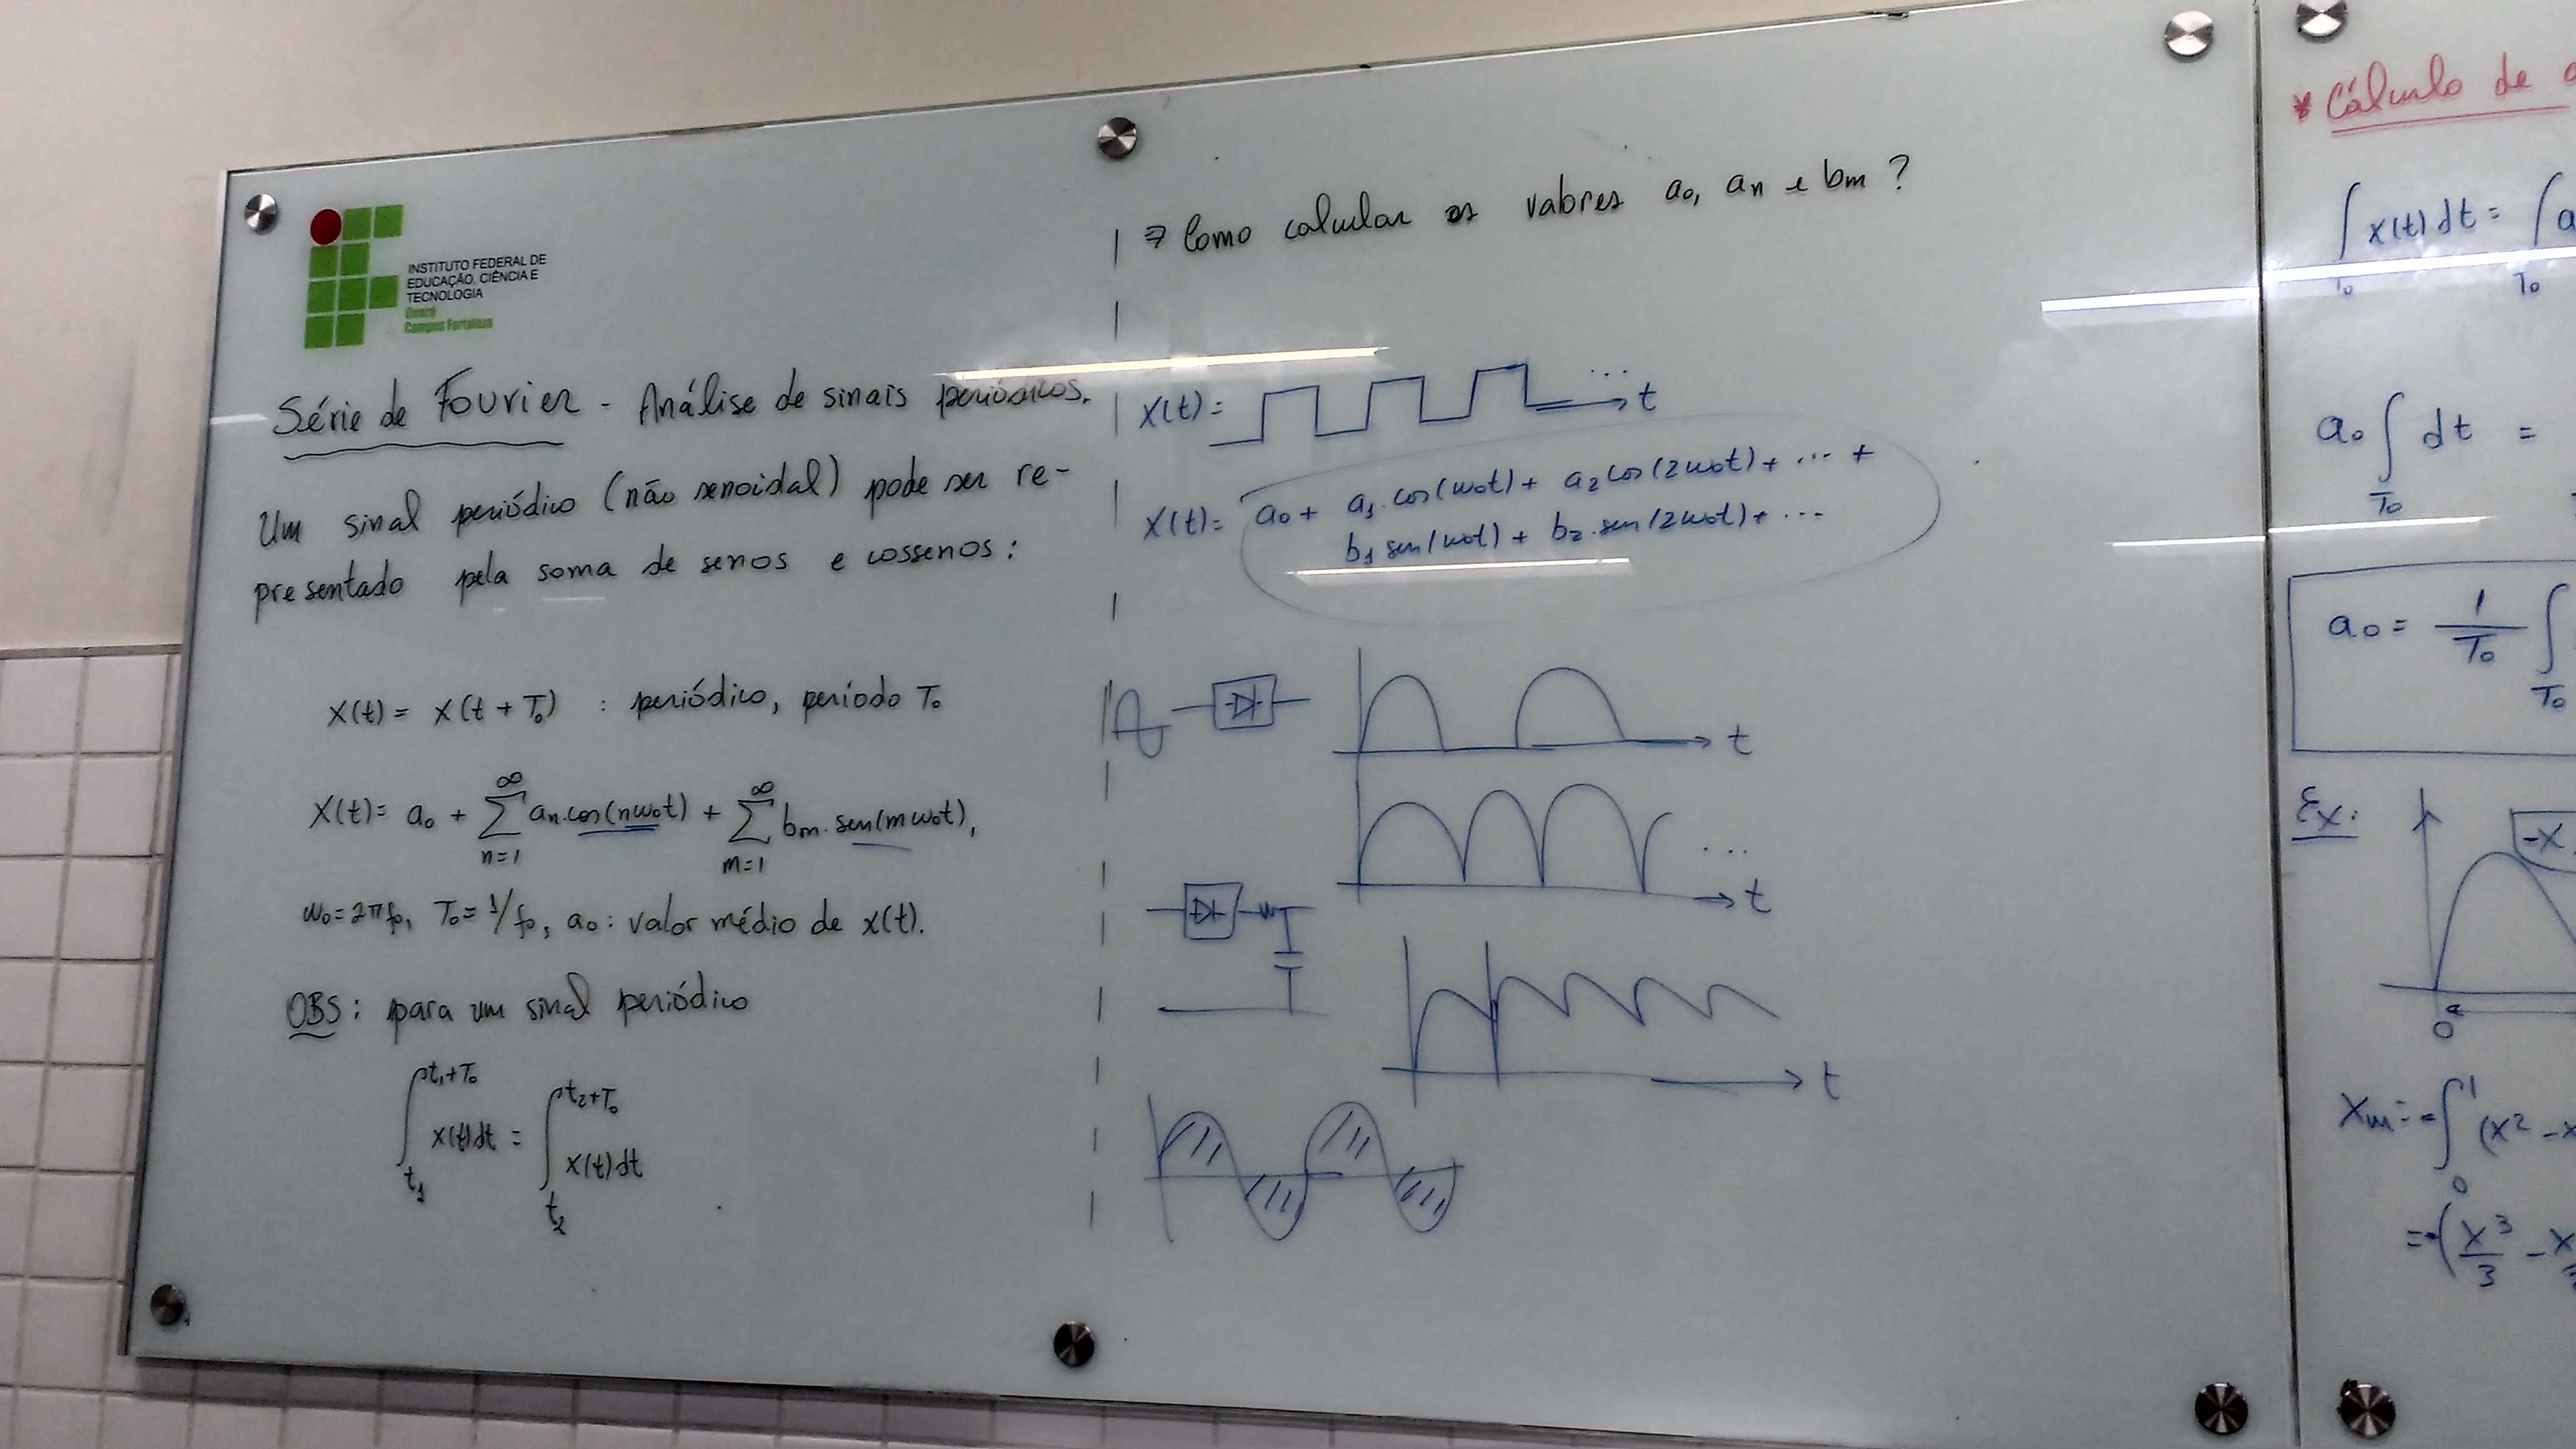 INSTITUTO FEDERAL DE
EDUCAÇÃO, CIÊNCIA E
TECNOLOGIA
Ceará
Campus Fortaleza
Série de Fourier - Análise de sinais periódicos.
Um sinal periódico (não senoidal) pode ser re-
presentado pela soma de senos e cossenos:
x(t) = x(t + T₀) : periódico, período T₀
x(t) = a₀ + ∑_{n=1}^{∞} aₙ.cos(nω₀t) + ∑_{m=1}^{∞} bₘ.sen(mω₀t),
ω₀=2πf₀, T₀=1/f₀, a₀: valor médio de x(t).
OBS: para um sinal periódico
∫_{t₁}^{t₁+T₀} x(t)dt = ∫_{t₂}^{t₂+T₀} x(t)dt
⇒ Como calcular os valores a₀, aₙ e bₘ ?
x(t)= ... t
x(t)= a₀ + a₁.cos(ω₀t) + a₂cos(2ω₀t)+ ... +
b₁sen(ω₀t) + b₂.sen(2ω₀t)+ ...
t
... t
t
* Cálculo de
∫_{T₀} x(t)dt = ∫_{T₀} a
a₀ ∫_{T₀} dt =
a₀ = 1/T₀ ∫_{T₀}
Ex:
-x
0
Xm = -∫_0^1 (x² - x
= -(x³/3 - x